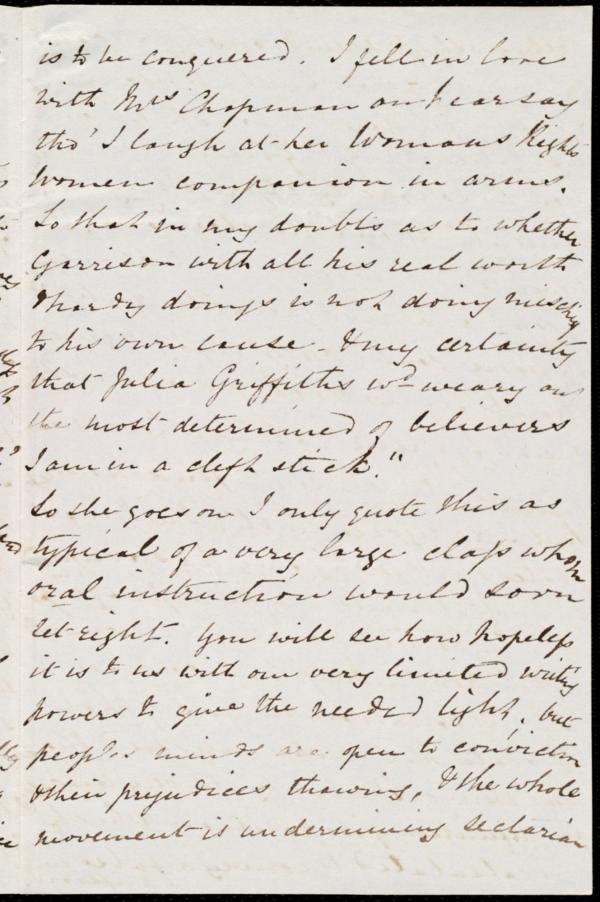 is to be conquered. I fell in love
with Mrs Chapman on hearsay
tho' I laugh at her Womans Rights
Women companion in arms.
So that in my doubts as to whether
Garrison with all his real worth
& hardy doings is not doing mischief
to his own cause - & my certainty
that Julia Griffiths wd weary out
the most determined of believers
I am in a cleft stick."
So she goes on I only quote this as
typical of a very large class whom
oral instruction would soon
set right. You will see how hopeless
it is to us with our very limited writing
powers to give the needed light, but
peoples minds are open to conviction
& their prejudices thawing, & the whole
movement is undermining sectarian